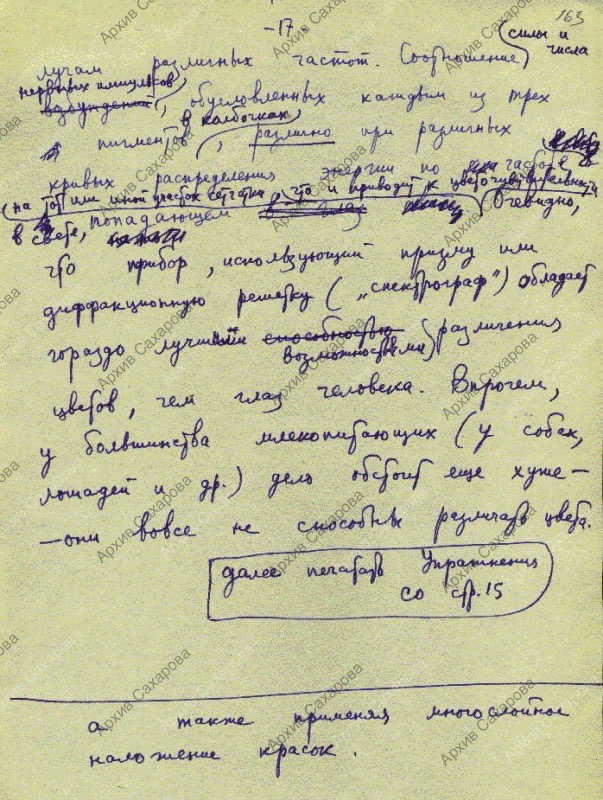 -17
163
лучам различных частот. Соотношение
(силы и числа
нервных импульсов)
возбуждений, обусловленных каждым из трех
пигментов
в колбочках
, различно при различных
кривых распределения энергии по частоте
(на тот или иной участок сетчатки, что и приводит к цветочувствительности
в свете, попадающем Очевидно,
что прибор, использующий призму или
диффракционную решетку („спектрограф") обладает
гораздо лучшими способностью различения
возможностями)
цветов, чем глаз человека. Впрочем,
у большинства млекопитающих (у собак,
лошадей и др.) дело обстоит еще хуже —
— они вовсе не способны различать цвета.
далее печатать Упражнения
со стр. 15
а также применяя многослойное
наложение красок.
Архив Сахарова